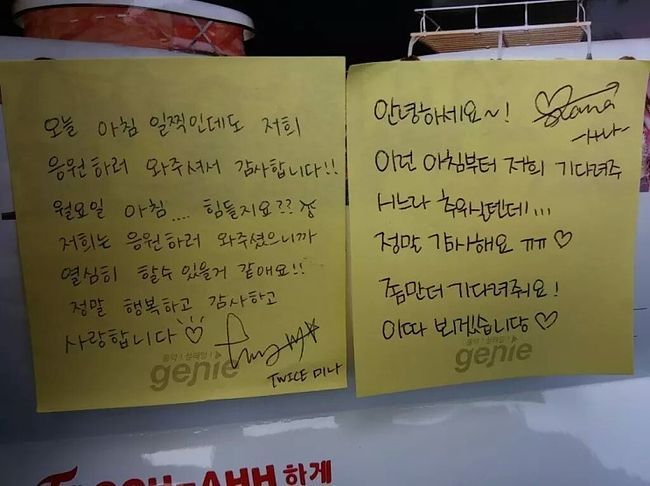 오늘 아침 일찍인데도 저희
응원하러 와주셔서 감사합니다!!
월요일 아침.... 힘들지요??
저희는 응원하러 와주셨으니까
열심히 할수 있을거 같애요!!
정말 행복하고 감사하고
사랑합니다♡
TWICE 미나
genie
안녕하세요~!
Sana
-사나-
이런 아침부터 저희 기다려주
시느라 추우실텐데!...
정말 감사해요 ㅠㅠ ♡
쫌만더 기다려줘요!
이따 뵈겠습니당♡
genie
OOH-AHH 하게